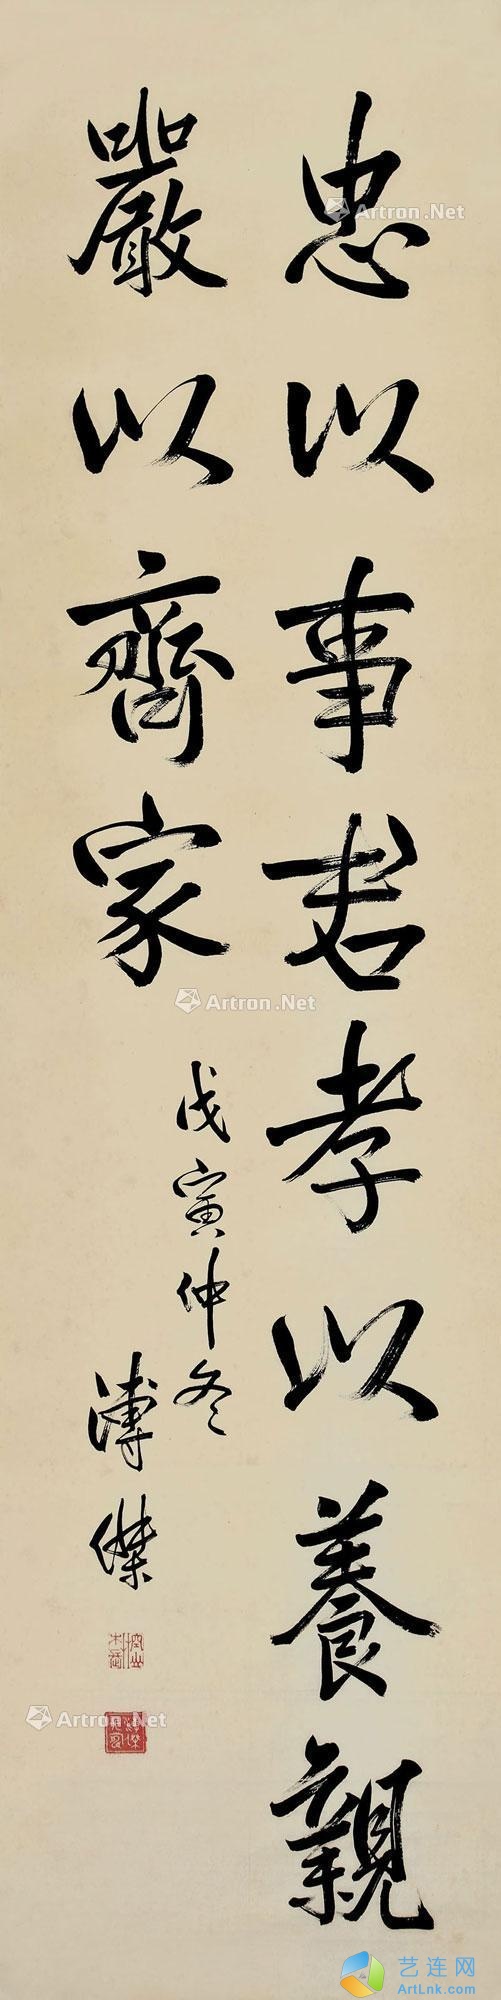 忠以事君孝以養親
嚴以齊家
戊寅仲冬
溥傑
Artron.Net
Artron.Net
Artron.Net
艺连网
ArtLnk.com